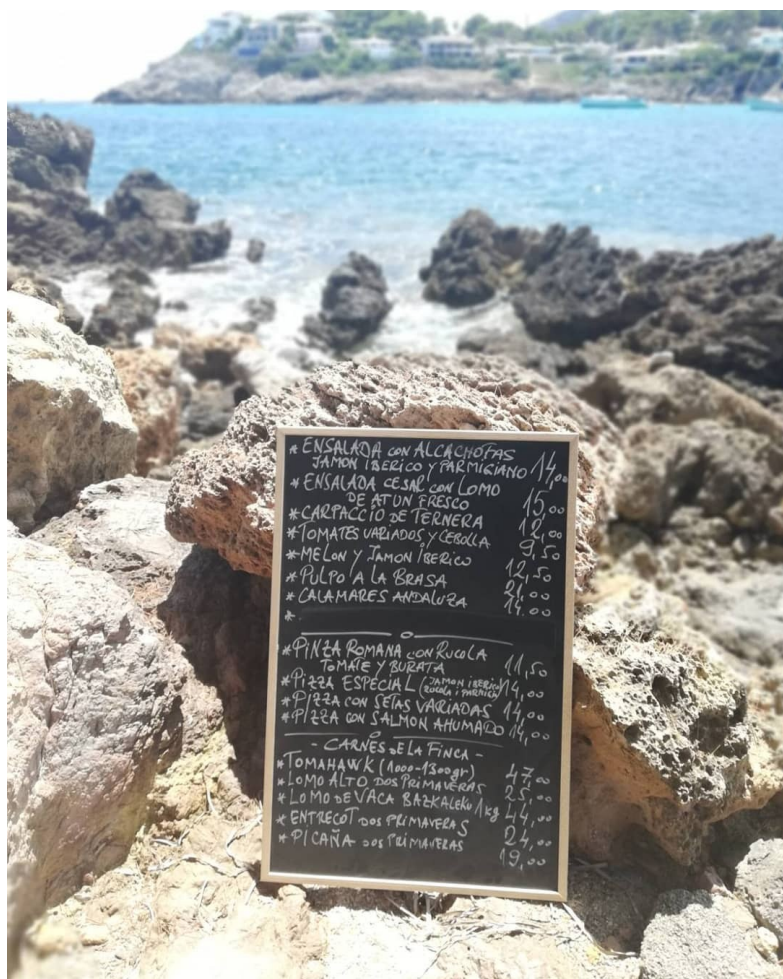 * ENSALADA CON ALCACHOFAS
JAMON IBERICO Y PARMIGIANO 14,00
* ENSALADA CESAR CON LOMO
DE ATUN FRESCO 15,00
* CARPACCIO DE TERNERA 12,00
* TOMATES VARIADOS Y CEBOLLA 9,50
* MELON Y JAMON IBERICO 12,50
* PULPO A LA BRASA 21,00
* CALAMARES ANDALUZA 14,00
*
* PINZA ROMANA CON RUCOLA
TOMATE Y BURATA 11,50
* PIZZA ESPECIAL (JAMON IBERICO
RUCOLA I PARMIG) 14,00
* PIZZA CON SETAS VARIADAS 14,00
* PIZZA CON SALMON AHUMADO 14,00
- CARNES DE LA FINCA -
* TOMAHAWK (1000-1300gr) 47,00
* LOMO ALTO DOS PRIMAVERAS 25,00
* LOMO DE VACA BAZKALEKU 1kg 44,00
* ENTRECOT DOS PRIMAVERAS 24,00
* PICAÑA DOS PRIMAVERAS 19,00